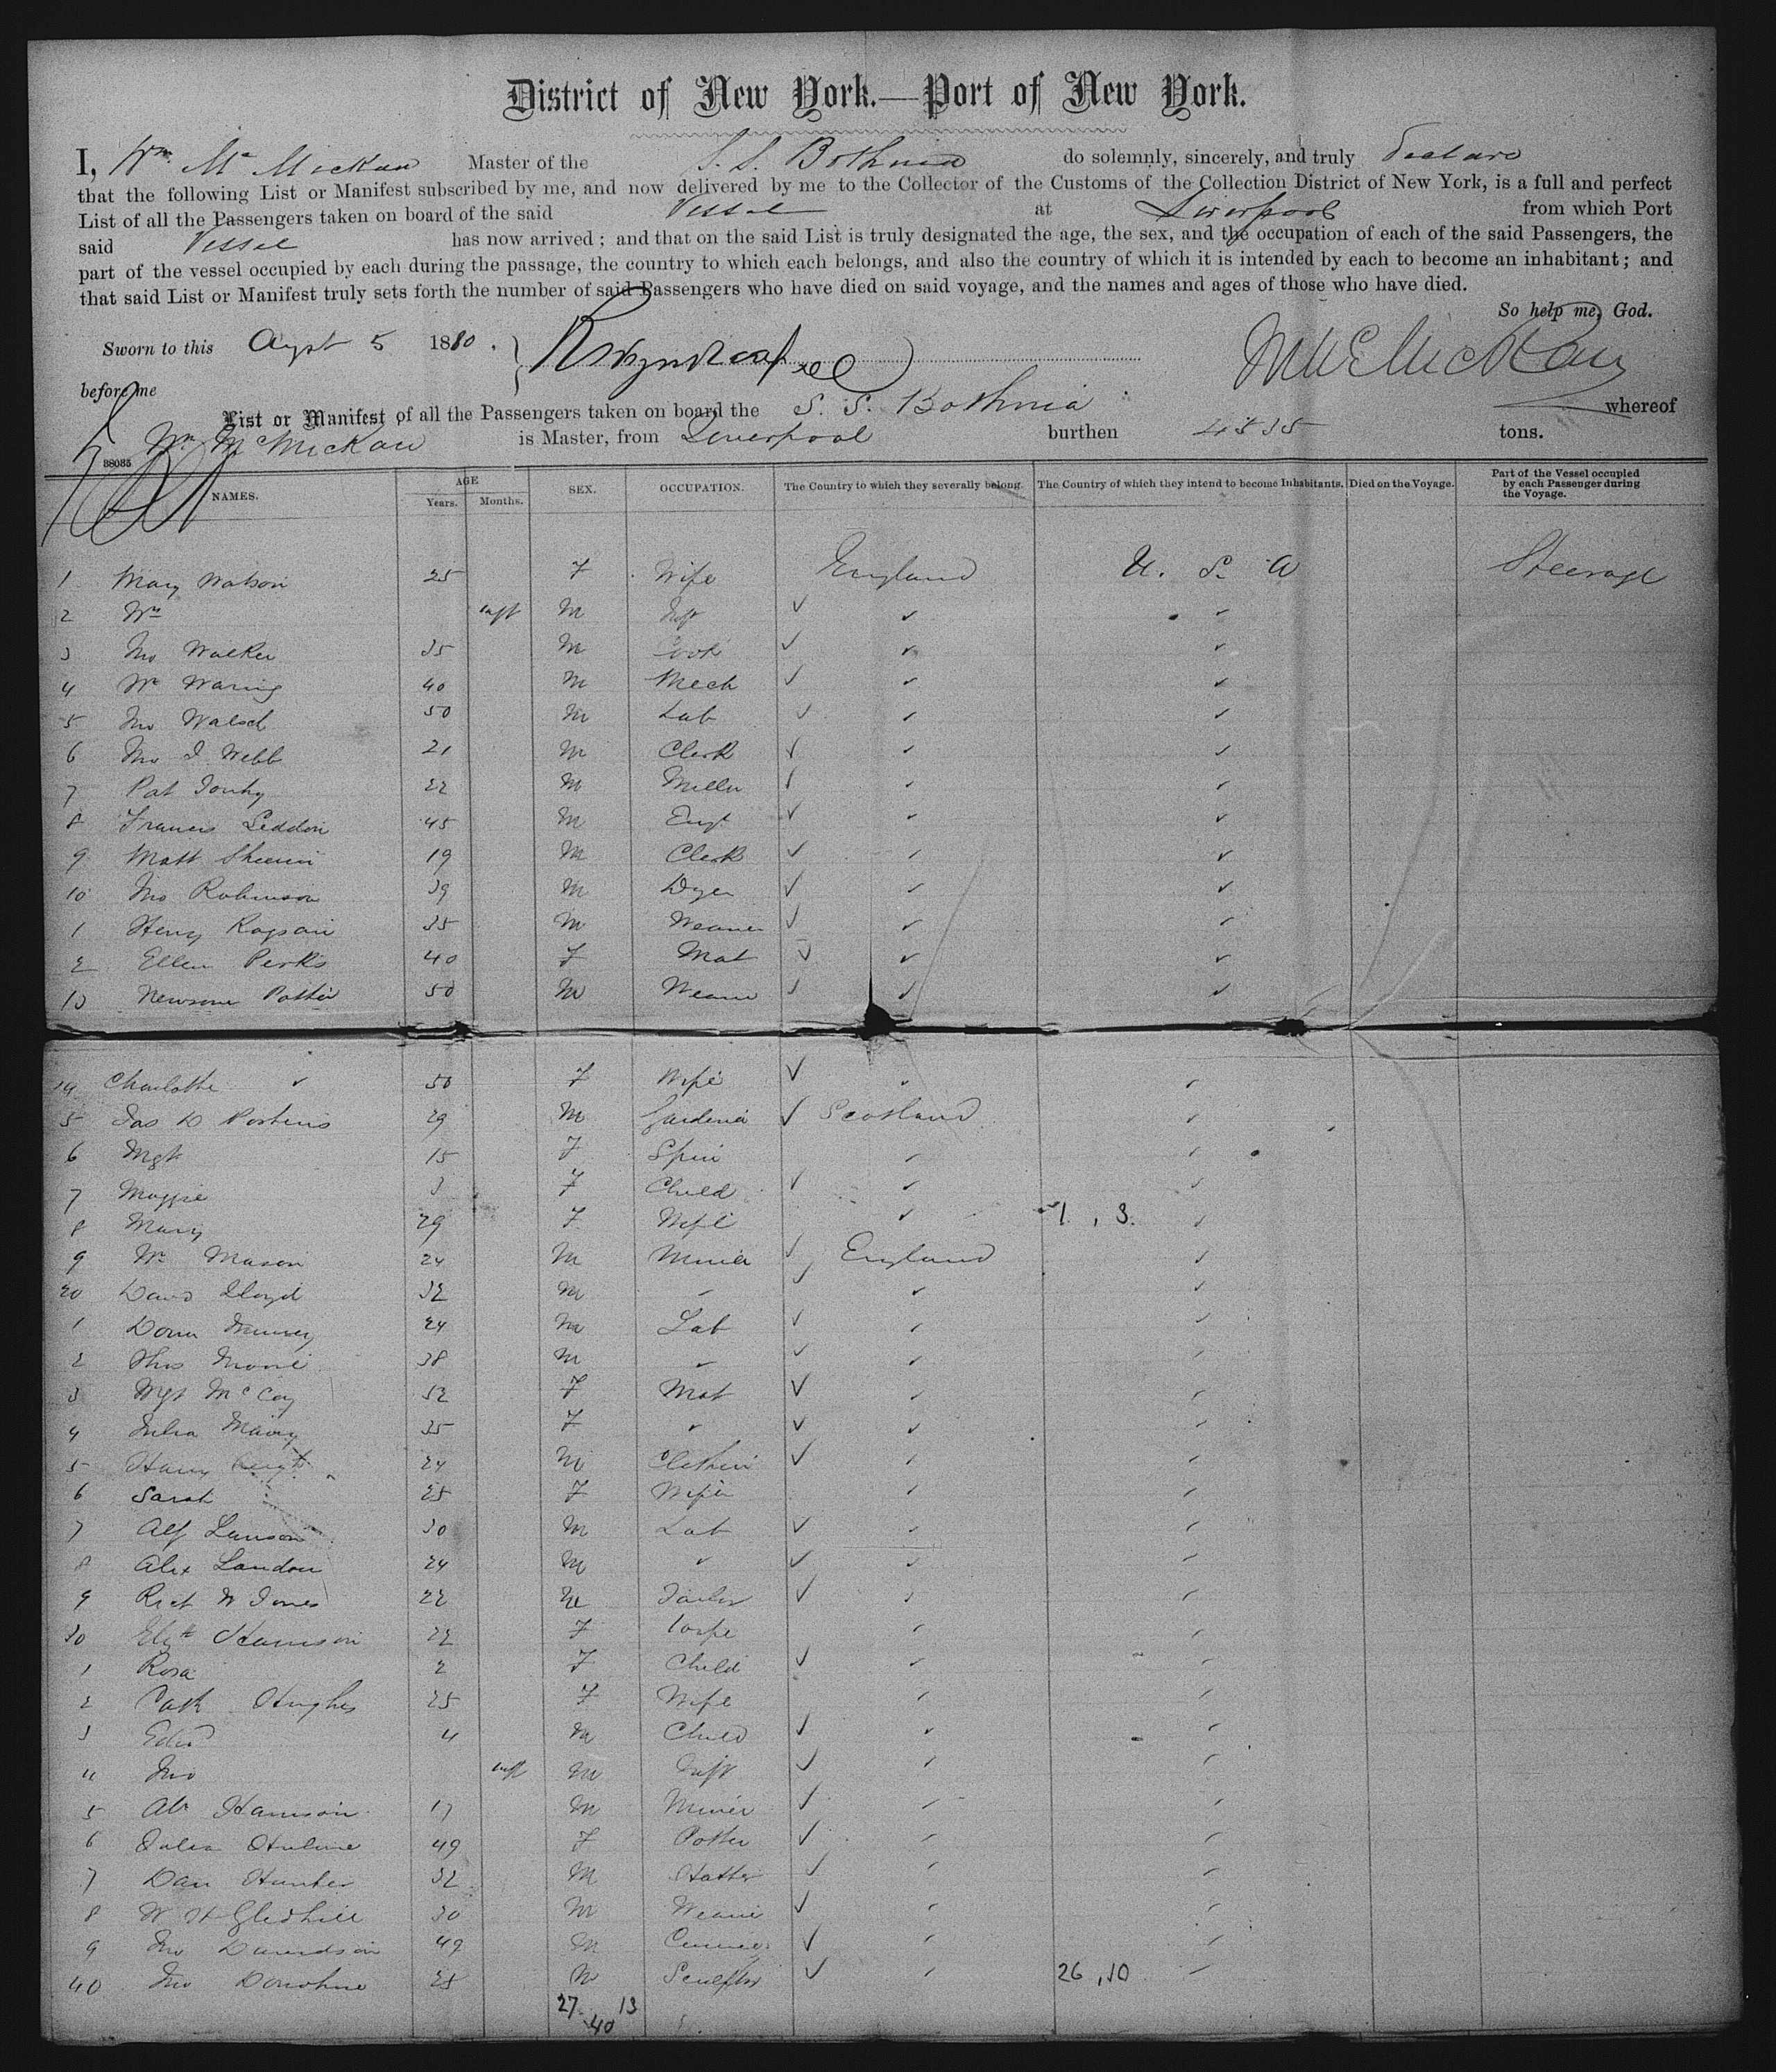 District of New York.—Port of New York.
I, Wm. McMickan Master of the S. S. Bothnia do solemnly, sincerely, and truly declare
that the following List or Manifest subscribed by me, and now delivered by me to the Collector of the Customs of the Collection District of New York, is a full and perfect
List of all the Passengers taken on board of the said Vessel at Liverpool from which Port
said Vessel has now arrived; and that on the said List is truly designated the age, the sex, and the occupation of each of the said Passengers, the
part of the vessel occupied by each during the passage, the country to which each belongs, and also the country of which it is intended by each to become an inhabitant; and
that said List or Manifest truly sets forth the number of said Passengers who have died on said voyage, and the names and ages of those who have died.
So help me, God.
Sworn to this Augst 5 1880.
before me
W McMickan
List or Manifest of all the Passengers taken on board the S. S. Bothnia whereof
Wm McMickan is Master, from Liverpool burthen 4535 tons.
38035
NAMES. AGE Years. Months. SEX. OCCUPATION. The Country to which they severally belong. The Country of which they intend to become Inhabitants. Died on the Voyage. Part of the Vessel occupied by each Passenger during the Voyage.
1 Mary Watson 25 F Wife England U. S. A Steerage
2 Wm inft M Inft ✓ ✓ ✓
3 Jno Walker 35 M Cook ✓ ✓ ✓
4 Wm Waring 40 M Mech ✓ ✓ ✓
5 Jno Walsch 50 M Lab ✓ ✓ ✓
6 Jno J Webb 21 M Clerk ✓ ✓ ✓
7 Pat 22 M Miller ✓ ✓ ✓
8 Francis Seddon 45 M Engr ✓ ✓ ✓
9 Matt 19 M Clerk ✓ ✓ ✓
10 Jno Robinson 39 M Dyer ✓ ✓ ✓
1 Henry 35 M Weaver ✓ ✓ ✓
2 Ellen Perks 40 F Mat ✓ ✓ ✓
13 Newsome Potter 50 M Weaver ✓ ✓ ✓
14 Charlotte ✓ 50 F Wife ✓ ✓ ✓
5 Jas D Porteus 29 M Gardener ✓ Scotland ✓
6 Mgt 15 F Spin ✓ ✓
7 Maggie 3 F Child ✓ ✓ ✓
8 Mary 29 F Wife ✓ 1, 3. ✓
9 Wm Mason 24 M Miner ✓ England ✓
20 David Lloyd 32 M ✓ ✓ ✓ ✓
1 24 M Lab ✓ ✓ ✓
2 Thos 38 M ✓ ✓ ✓ ✓
3 Mgt McCoy 52 F Mat ✓ ✓ ✓
4 Julia 35 F ✓ ✓ ✓ ✓
5 Harry 24 M Clothier ✓ ✓ ✓
6 Sarah 25 F Wife ✓ ✓
7 Alf Lawson 30 M Lab ✓ ✓ ✓
8 Alex Landon 24 M ✓ ✓ ✓ ✓
9 Rict W Jones 22 M Tailor ✓ ✓ ✓
30 Elizth Harrison 22 F Wife ✓ ✓
1 Rosa 2 F Child ✓ ✓ ✓
2 Cath Hughes 25 F Wife ✓ ✓
3 Edwd 4 M Child ✓ ✓ ✓
4 Jno inft M Inft ✓ ✓ ✓
5 Abm Harrison 17 M Miner ✓ ✓ ✓
6 Julia Hulme 49 F Potter ✓ ✓ ✓
7 Dan Hunter 32 M Hatter ✓ ✓ ✓
8 W H Gledhill 30 M Weaver ✓ ✓ ✓
9 Jno Davidson 49 M ✓ ✓ ✓
40 Jno Donohue 25 M Sculptor ✓ ✓ 26, 10 ✓
27 13
40